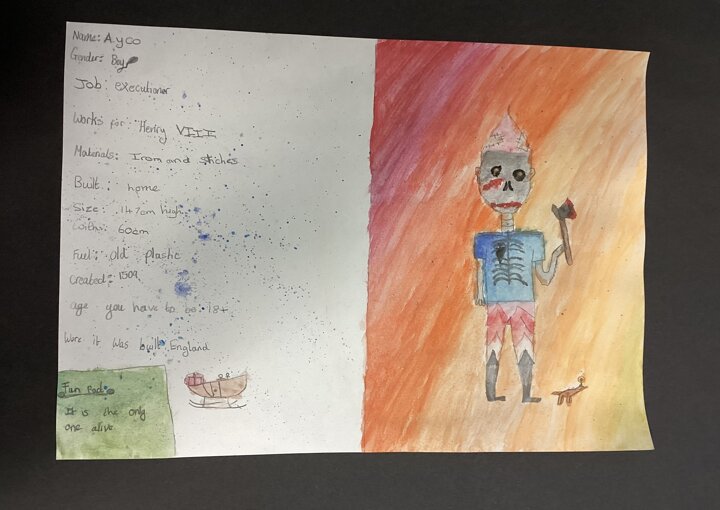 Name: Ayco
Gender: Boy
Job: executioner
Works for Henry VIII
Materials: Iron and stiches
Built: home
Size: 147cm high
With: 60cm
Fuel: old plastic
Created: 1509
age you have to be 18+
Were it was built England
Fun Fact:
It is the only
one alive